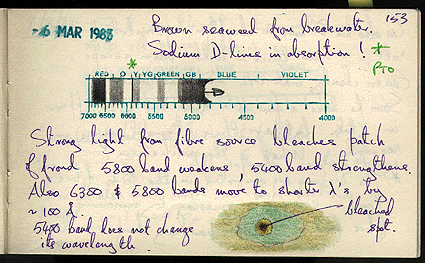 153
-6 MAR 1985
Brown seaweed from breakwater.
Sodium D-lines in absorption ! *
PTO
*
RED O Y YG GREEN GB BLUE VIOLET
7000 6500 6000 5500 5000 4500 4000
Strong light from fibre source bleaches patch
of frond 5800 band weakens, 5400 band strengthens.
Also 6300 & 5800 bands move to shorter λ's by
~ 100 Å.
5400 band does not change
its wavelength.
bleached
spot.